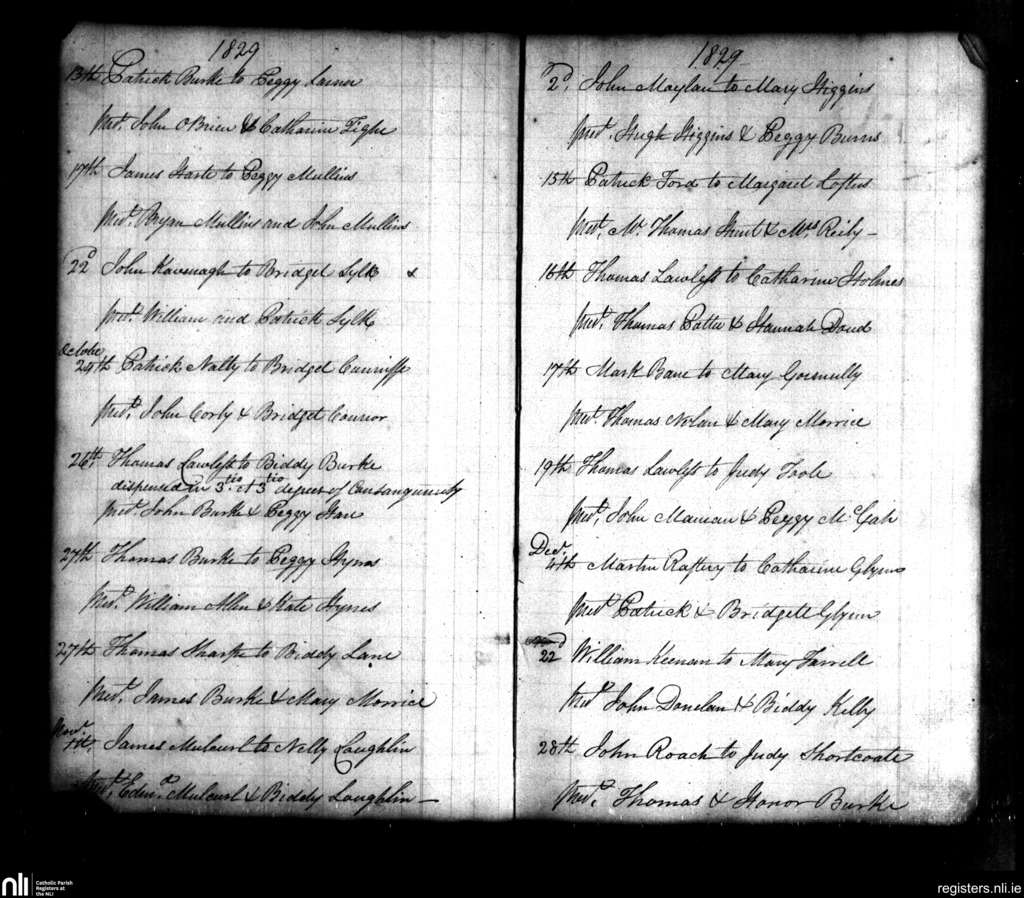 1829
13th Patrick Burke to Peggy Larner
prest. John O'Brien & Catharine Tighe
17th James Harte to Peggy Mullins
prest. Bryan Mullins and John Mullins
22d John Kavenagh to Bridget Lylk x
prest. William and Patrick Lylk
October
24th Patrick Natty to Bridget Cunniffe
prest. John Corby & Bridget Connor
26th. Thomas Lawless to Biddy Burke
dispensed in 3tio et 3tio degrees of Consanguinity
prest. John Burke & Peggy
27th Thomas Burke to Peggy Hyns
prest. William Allin & Kate Hynes
27th Thomas Sharpe to Biddy Lane
prest. James Burke & Mary Morrice
Novr.
James Mulcurl to Nelly Loughlin
prest. Edmd. Mulcurl & Biddy Loughlin
1829
2d. John Moylan to Mary Higgins
prest. Hugh Higgins & Peggy Burns
15th Patrick Ford to Margaret Loftus
prest. Mr. Thomas & Mrs Reily
16th Thomas Lawless to Catharine Holmes
prest. Thomas & Hannah Doud
17th Mark Bane to Mary Gormully
prest. Thomas Nolan & Mary Morrice
19th Thomas Lawless to Judy Toole
prest. John Mannan & Peggy McGah
Decr.
4th Martin Raftery to Catharine Glynn
prest Patrick & Bridgett Glynn
22d William Keenan to Mary Farrell
prest John Donelan & Biddy Kelly
28th John Roach to Judy Shortcoate
prest. Thomas & Honor Burke
nli
Catholic Parish
Registers at
the NLI
registers.nli.ie